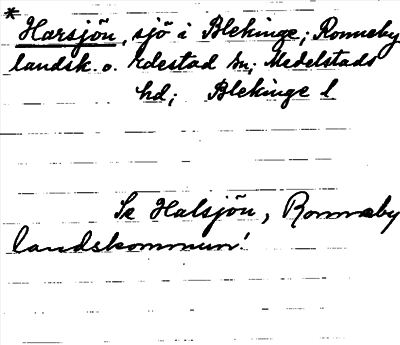 * Harsjön, sjö i Blekinge; Ronneby
landsk. o. Edestad sn; Medelstads
hd; Blekinge l
Se Halsjön, Ronneby
landskommun!